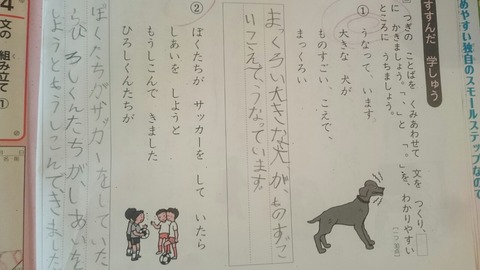 めやすい独自のスモールステップなので
すすんだ 学しゅう
つぎの ことばを くみあわせて 文を つくり、
に かきましょう。「、」と 「。」を、わかりやすい
ところに うちましょう。
①
うなって、います。
大きな 犬が
ものすごい、こえで、
まっくろい
まっくろい大きな犬が、ものすご
いこえで、うなっています。
②
ぼくたちが サッカーを して いたら
しあいを しようと
もうしこんで きました
ひろしくんたちが
ぼくたちがサッカーをしていた
ら、ひろしくんたちが、しあいを
しようともうしこんできました
4
文の 組み立て ①